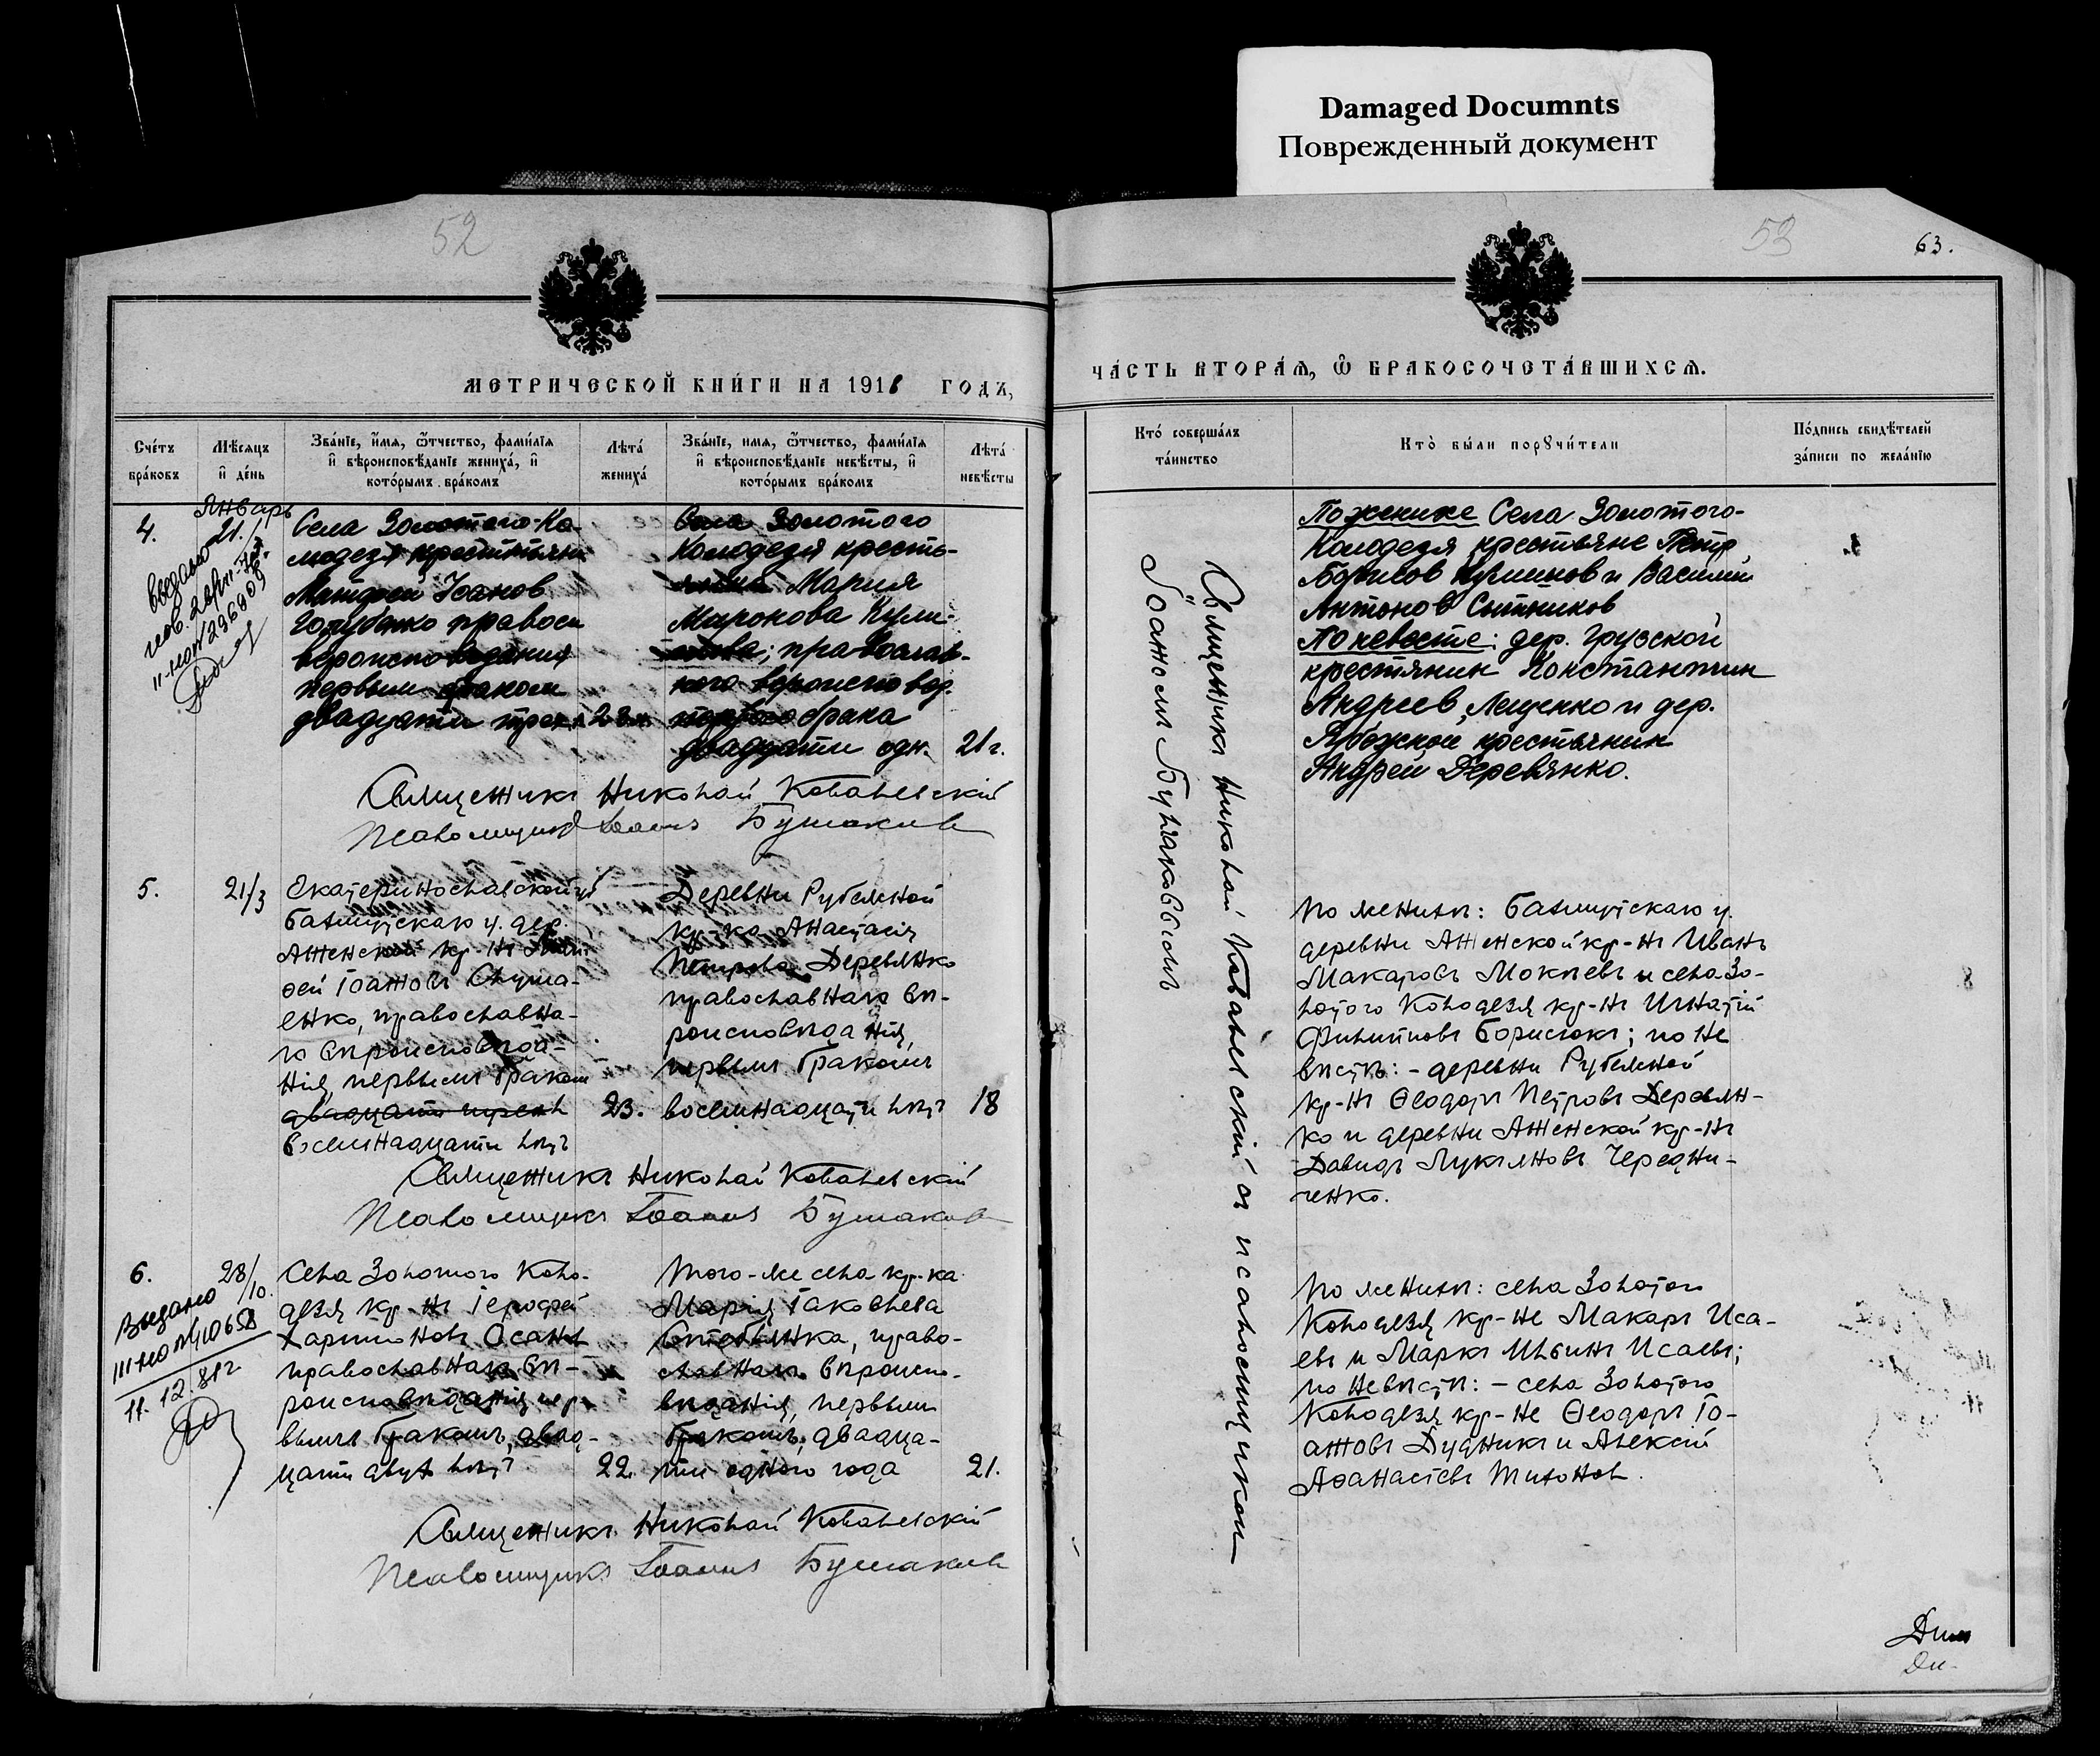 Damaged Documnts
Поврежденный документ
52
МЕТРИЧЕСКОЙ КНИ́ГИ НА 1918 ГОДЪ,
Сче́тъ бра́ковъ
Мѣ́сяцъ и҆ де́нь
Зва́нїе, и҆́мя, ѻ҆́тчество, фами́лїя
и҆ вѣроисповѣ́данїе жениха́, и҆
кото́рымъ бра́комъ
Лѣта́ жениха́
Зва́нїе, имя, ѻ҆́тчество, фами́лїя
и҆ вѣроисповѣ́данїе невѣ́сты, и҆
кото́рымъ бра́комъ
Лѣта́ невѣ́сты
Январь
4.
21.
Села Золотого Ко-
лодезя крестьянин
Матфей Іоанов
Голубенко правосл
вероисповедания
первым браком
двадцати трех л
23 л.
Села Золотого
Колодезя кресть-
янка Мария
Миронова Кули-
нова; православ-
ного вероисповед.
первого брака
двадцати одн.
21 г.
Священникъ Николай Ковалевскій
Псаломщикъ Іоаннъ Булаковъ
5.
21/3
Екатеринославской гу
Бахмутскаго у. дер.
Анненской кр-нъ
фей Іоанновъ Слуша-
енко, православна-
го вѣроисповѣда-
нія, первымъ бракомъ
двадцати трехъ
восемнадцати лѣтъ
23.
Деревни Рубежной
кр-ка Анастасія
Петрова Деревянко
православнаго вѣ-
роисповѣданія,
первымъ бракомъ
восемнадцати лѣтъ
18
Священникъ Николай Ковалевскій
Псаломщикъ Іоаннъ Булаковъ
6.
28/10.
Выдано
III-ЮЛ № 410658
11.12.81г
Села Золотого Коло-
дезя кр-нъ Іерофей
Харитоновъ Исаевъ
православнаго вѣ-
роисповѣданія пер-
вымъ бракомъ, двад-
цати двухъ лѣтъ
22.
Того-же села кр-ка
Марія Іаковлева
православнаго вѣроиспо-
вѣданія, первымъ
бракомъ, двадца-
ти одного года
21.
Священникъ Николай Ковалевскій
Псаломщикъ Іоаннъ Булаковъ
53
63.
ЧА́СТЬ ВТОРА́Я, Ѡ҆ БРАКОСОЧЕТА́ВШИХСЯ.
Кто̀ соверша́лъ та́инство
Кто̀ бы́ли порꙋчи́тели
По́дпись свидѣ́телей
за́писи по жела́нїю
Священникъ Николай Ковалевскій съ псаломщикомъ
Іоанномъ Булаковымъ
По женихе Села Золотого-
Колодезя крестьяне Петр
Борисов Кулинов и Василий
Антонов Сытников
По невесте: дер. Грузской
крестянин Константин
Андреев Лященко и дер.
крестьянин
Андрей Деревянко.
По женихѣ: Бахмутскаго у.
деревни Анненской кр-нъ Иванъ
Макаровъ Мокіевъ и села Зо-
лотого Колодезя кр-нъ Игнатій
Филипповъ Борисюкъ; по не
вѣстѣ: - деревни Рубежной
кр-нъ Ѳеодоръ Петровъ Деревян-
ко и деревни Анненской кр-нъ
Давидъ Лукьяновъ Чередни-
ченко.
По женихѣ: села Золотого
Колодезя кр-не Макаръ Иса-
евъ и Маркъ Ильинъ Исаевъ;
по невѣстѣ: - села Золотого
Колодезя кр-не Ѳеодоръ Іо-
анновъ Дудникъ и Алексій
Аѳанасіевъ Тихоновъ.